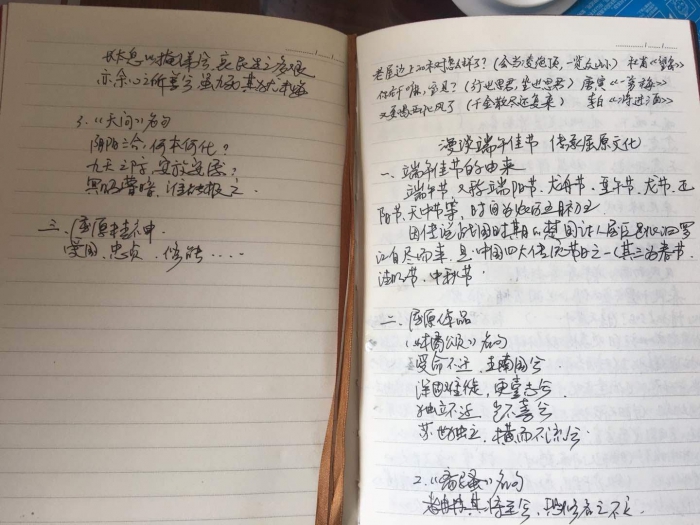 长太息以掩涕兮,哀民生之多艰
亦余心之所善兮 虽九死其犹未悔
3.《天问》名句
阴阳三合,何本何化?
九天之际,安放安属?
冥昭瞢暗,谁能极之
三、屈原精神
爱国、忠贞、修能……
(会当凌绝顶,一览众山小) 杜甫《望岳》
(行也思君,坐也思君) 唐寅《一剪梅》
又要喝西北风了 (千金散尽还复来) 李白《将进酒》
漫谈端午佳节 传承屈原文化
一、端午佳节的由来
端午节,又称端阳节、龙舟节、重午节、龙节、正
阳节、天中节等,时间为农历五月初五
因传说战国时期的楚国诗人屈原 汨罗
江自尽而来,是中国四大传统节日之一(其三为春节、
清明节、中秋节
二、屈原作品
1.《橘颂》名句
受命不迁,生南国兮
深固难徙,更壹志兮
独立不迁 岂不喜兮
苏世独立,横而不流兮
2.《离骚》名句
老冉冉其将至兮,恐修名之不立